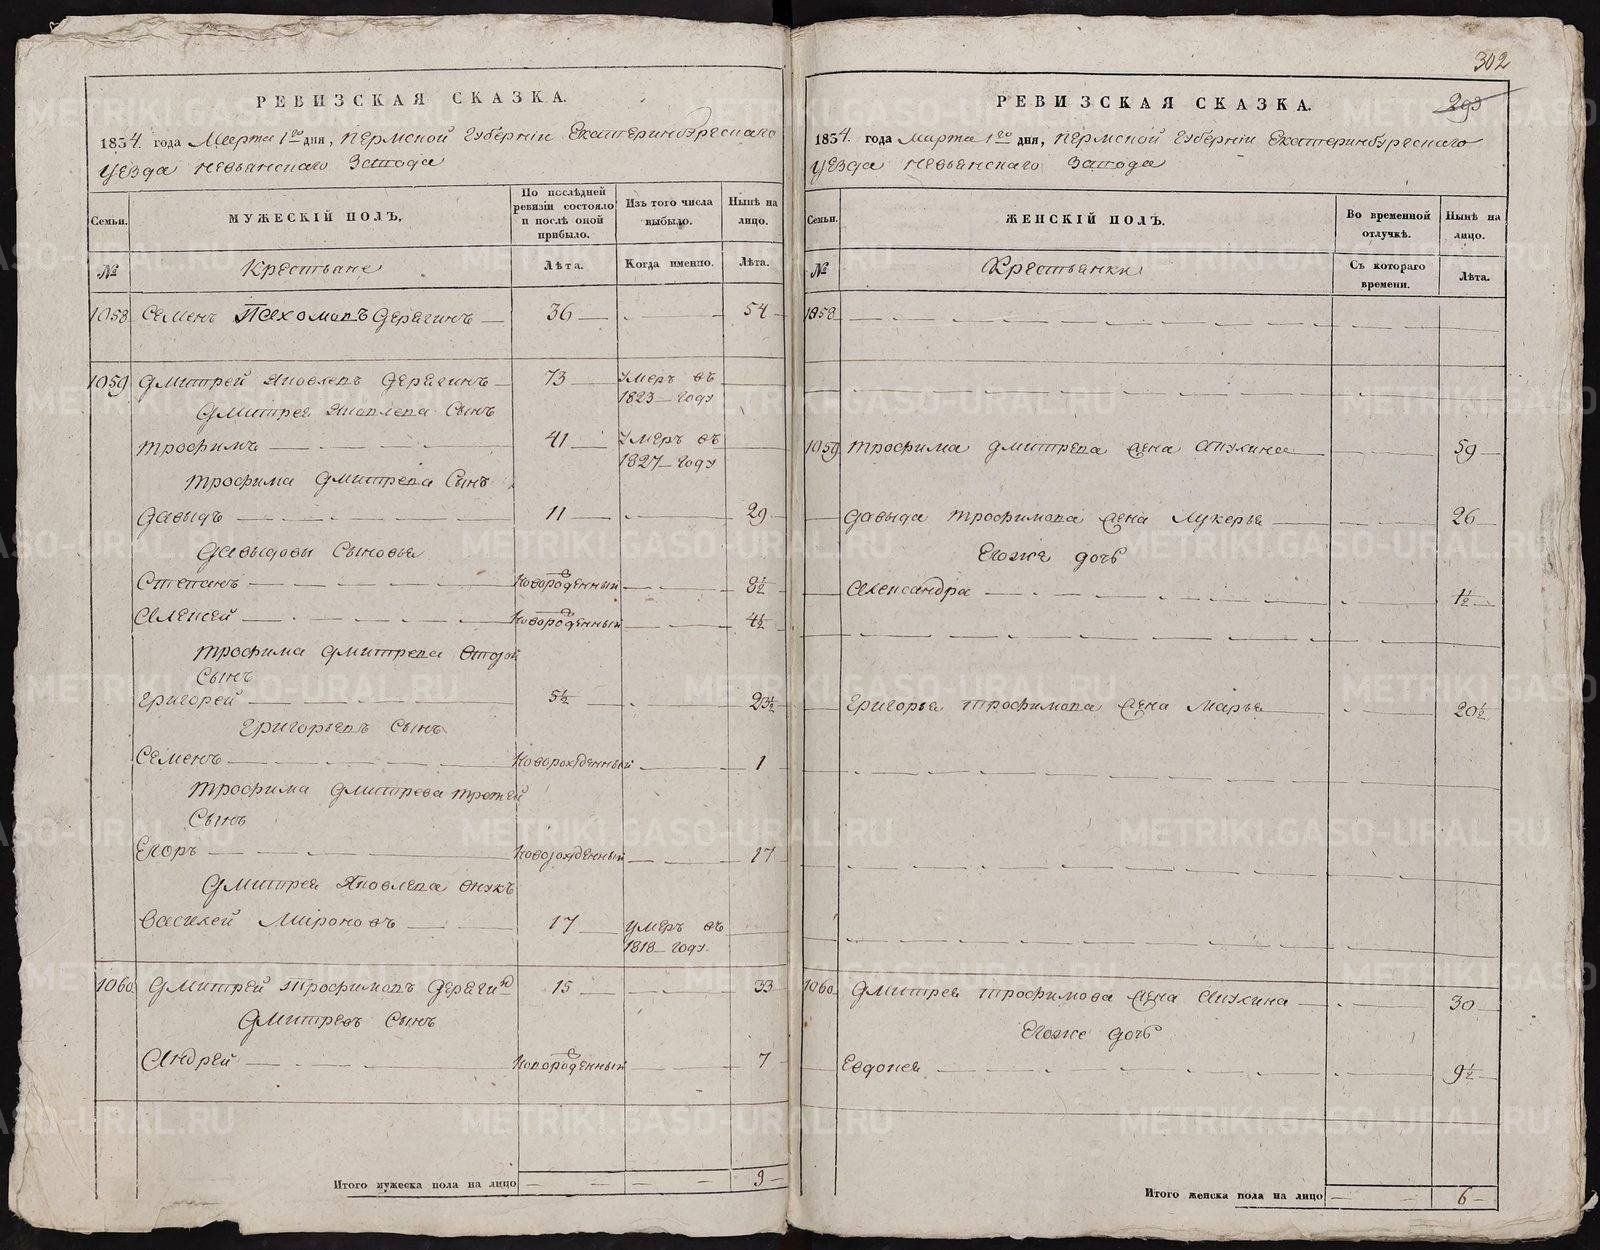 РЕВИЗСКАЯ СКАЗКА.
1834. года Марта 1го дня, Пермской Губерніи Екатеринбургскаго
Уезда Невьянскаго Завода
Семьи.
МУЖЕСКІЙ ПОЛЪ,
По послѣдней ревизіи состояло и послѣ оной прибыло.
Изъ того числа выбыло.
Нынѣ на лицо.
№
Крестьане
Лѣта.
Когда именно.
Лѣта.
1058 Семенъ Пахомовъ Дерягинъ — 36 — 54
1059 Дмитрей Яковлевъ Дерягинъ — 73 — Умеръ въ 1823 году
Дмитрея Яковлева Сынъ
Трофимъ — 41 — Умеръ въ 1827 году
Трофима Дмитрева Сынъ
Давыдъ — 11 — 29
Давыдовы Сыновья
Степанъ — Новорожденный — 8½
Алексей — Новорожденный — 4½
Трофима Дмитрева Второй
Сынъ
Григорей — 5½ — 23½
Григорьевъ Сынъ
Семенъ — Новорожденный — 1
Трофима Дмитрева третей
Сынъ
Егоръ — Новорожденный — 17
Дмитрея Яковлева внукъ
Василей Мироновъ — 17 — умеръ въ 1818 году
1060 Дмитрей Трофимовъ Дерягинъ 15 — 33
Дмитревъ Сынъ
Андрей — Новорожденный — 7
Итого мужеска пола на лицо — 9
302
293
РЕВИЗСКАЯ СКАЗКА.
1834. года Марта 1го дня, Пермской Губерніи Екатеринбургскаго
Уезда Невьянскаго Завода
Семьи.
ЖЕНСКІЙ ПОЛЪ.
Во временной отлучкѣ.
Нынѣ на лицо.
№
Крестьянки
Съ котораго времени.
Лѣта.
1058
1059 Трофима Дмитрева жена Акулина — 59
Давыда Трофимова жена Лукерья — 26
Егоже дочь
Александра — 1½
Григорья Трофимова жена Марья — 20½
1060 Дмитрея Трофимова жена Акулина — 30
Егоже дочь
Евдокея — 9½
Итого женска пола на лицо — 6
METRIKI.GASO-URAL.RU